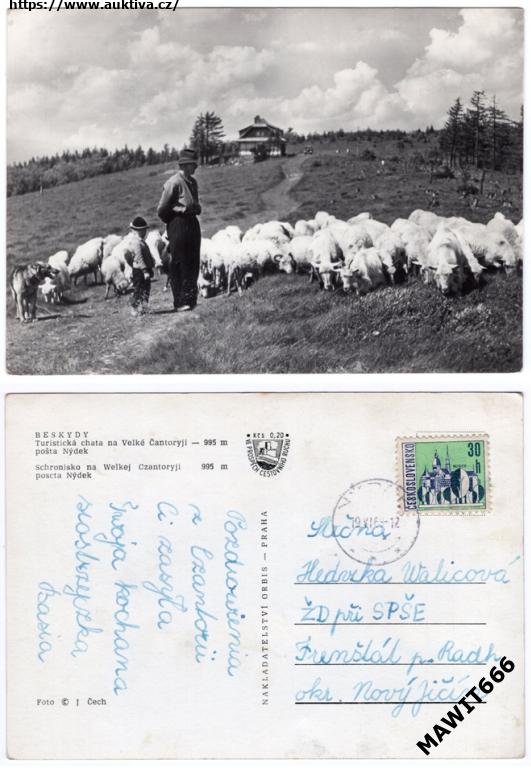 https://www.auktiva.cz/
BESKYDY
Turistická chata na Velké Čantoryji — 995 m
pošta Nýdek
Schronisko na Welkej Czantoryji 995 m
poscta Nýdek
Kčs 0,20
VE PROSPĚCH CESTOVNÍHO RUCHU
ČESKOSLOVENSKO
30 h
Pozdrowienia
z Czantorii
Ci zasyła
Twoja kochana
siostrzyczka
Basia
NAKLADATELSTVÍ ORBIS — PRAHA
Slečna
Hedvika Walicová
ŽD při SPŠE
Frenštát p. Radh.
okr. Nový Jičín
Foto © J Čech
MAWIT666